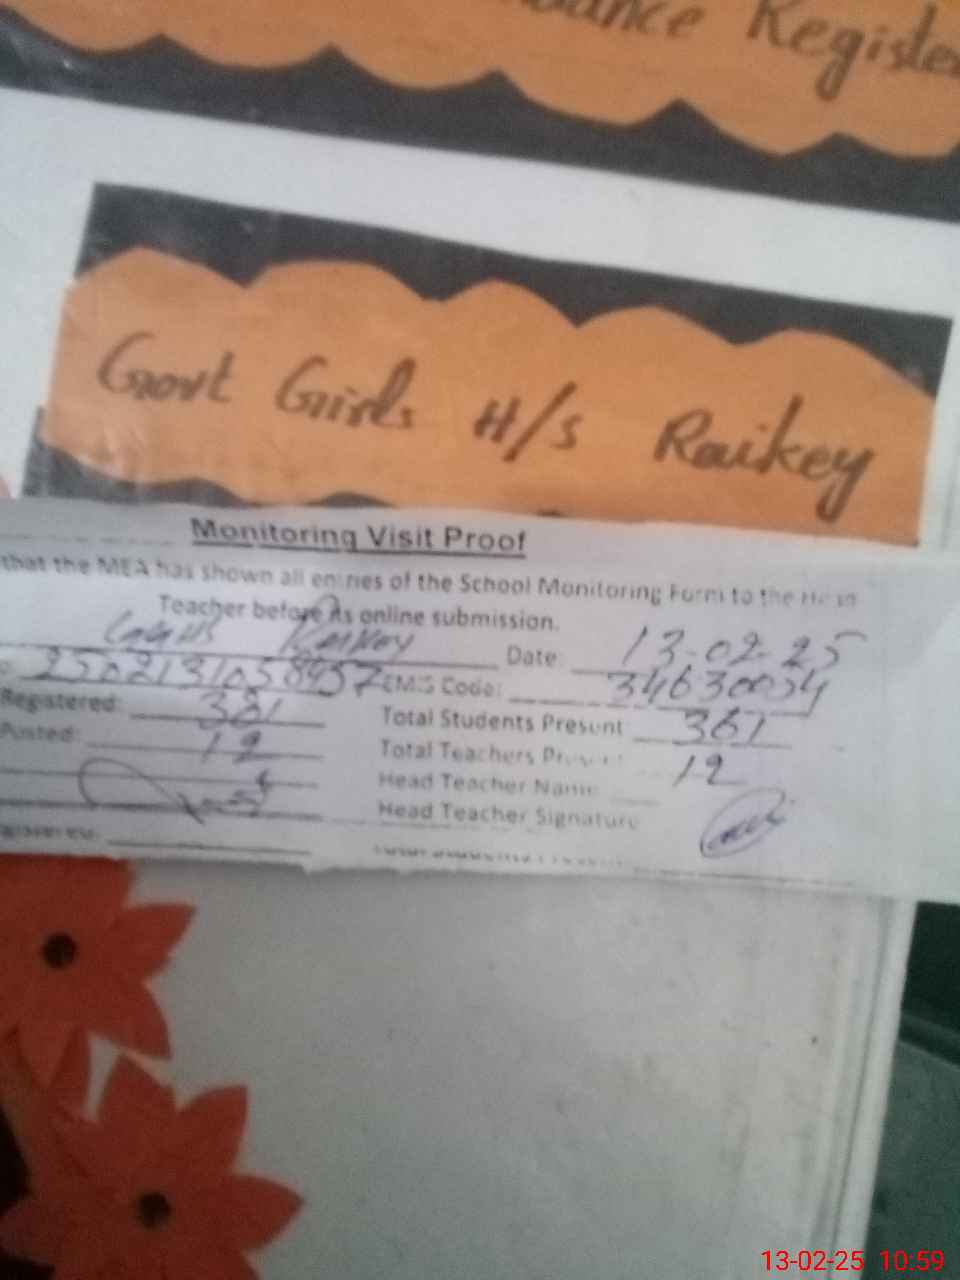 Register
Govt Girls H/S Raikey
Monitoring Visit Proof
that the MEA has shown all entries of the School Monitoring Form to the Head
Teacher before its online submission.
GGHS Raikey Date: 13-02-25
EMIS Code: 34630034
Registered: 381 Total Students Present 361
Posted: 12 Total Teachers Present 12
Head Teacher Name
Head Teacher Signature
Total Students Present
13-02-25 10:59